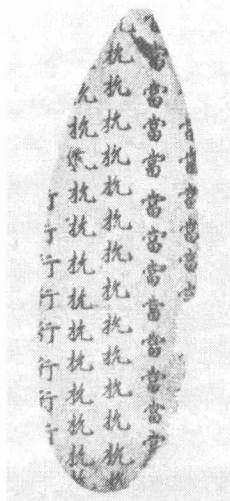 當當當當當當
當當當當當當當當當當當當當
抗抗抗抗抗抗抗抗抗抗抗抗抗抗
抗抗抗抗抗抗抗抗抗抗抗抗
行行行行行行行行